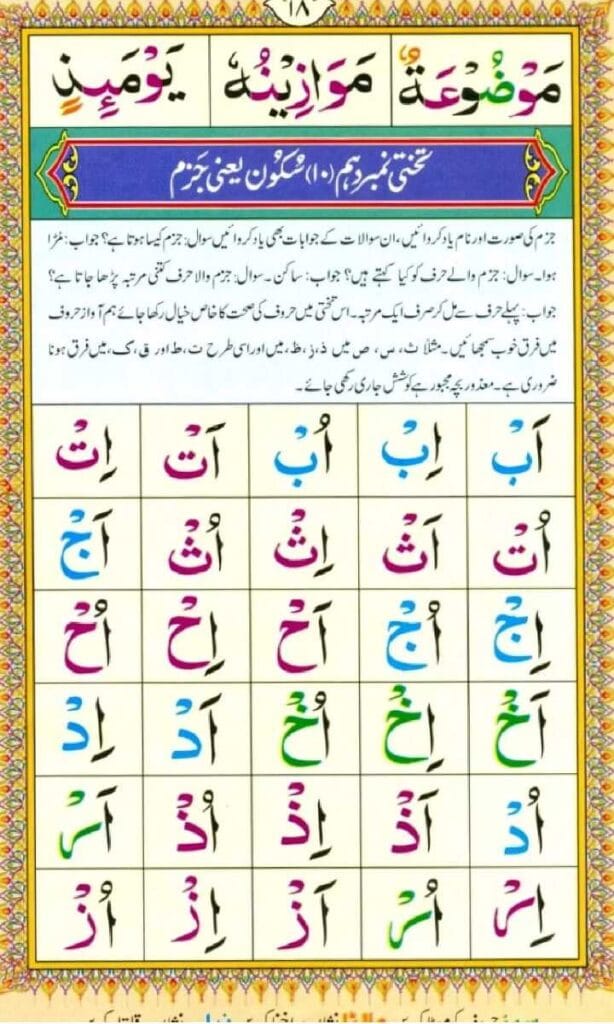 ١٨
مَوْضُوْعَةٌ مَوَازِيْنُهٗ يَوْمَئِذٍ
تختی نمبر دہم (۱۰) سُکُون یعنی جَزم
جزم کی صورت اور نام یاد کروائیں، ان سوالات کے جوابات بھی یاد کروائیں سوال: جزم کیسا ہوتا ہے؟ جواب: مُڑا
ہوا۔ سوال: جزم والے حرف کو کیا کہتے ہیں؟ جواب: ساکن۔ سوال: جزم والا حرف کتنی مرتبہ پڑھا جاتا ہے؟
جواب: پہلے حرف سے مل کر صرف ایک مرتبہ۔ اس تختی میں حروف کی صحت کا خاص خیال رکھا جائے ہم آواز حروف
میں فرق خوب سمجھائیں۔ مثلاً ث، س، ص میں ذ، ز، ظ، میں اور اسی طرح ت، ط اور ق، ک، میں فرق ہونا
ضروری ہے۔ معذور بچہ مجبور ہے کوشش جاری رکھی جائے۔
اَبْ اِبْ اُبْ اَتْ اِتْ
اُتْ اَثْ اِثْ اُثْ اَجْ
اِجْ اُجْ اَحْ اِحْ اُحْ
اَخْ اِخْ اُخْ اَدْ اِدْ
اُدْ اَذْ اِذْ اُذْ اَرْ
اِرْ اُرْ اَزْ اِزْ اُزْ